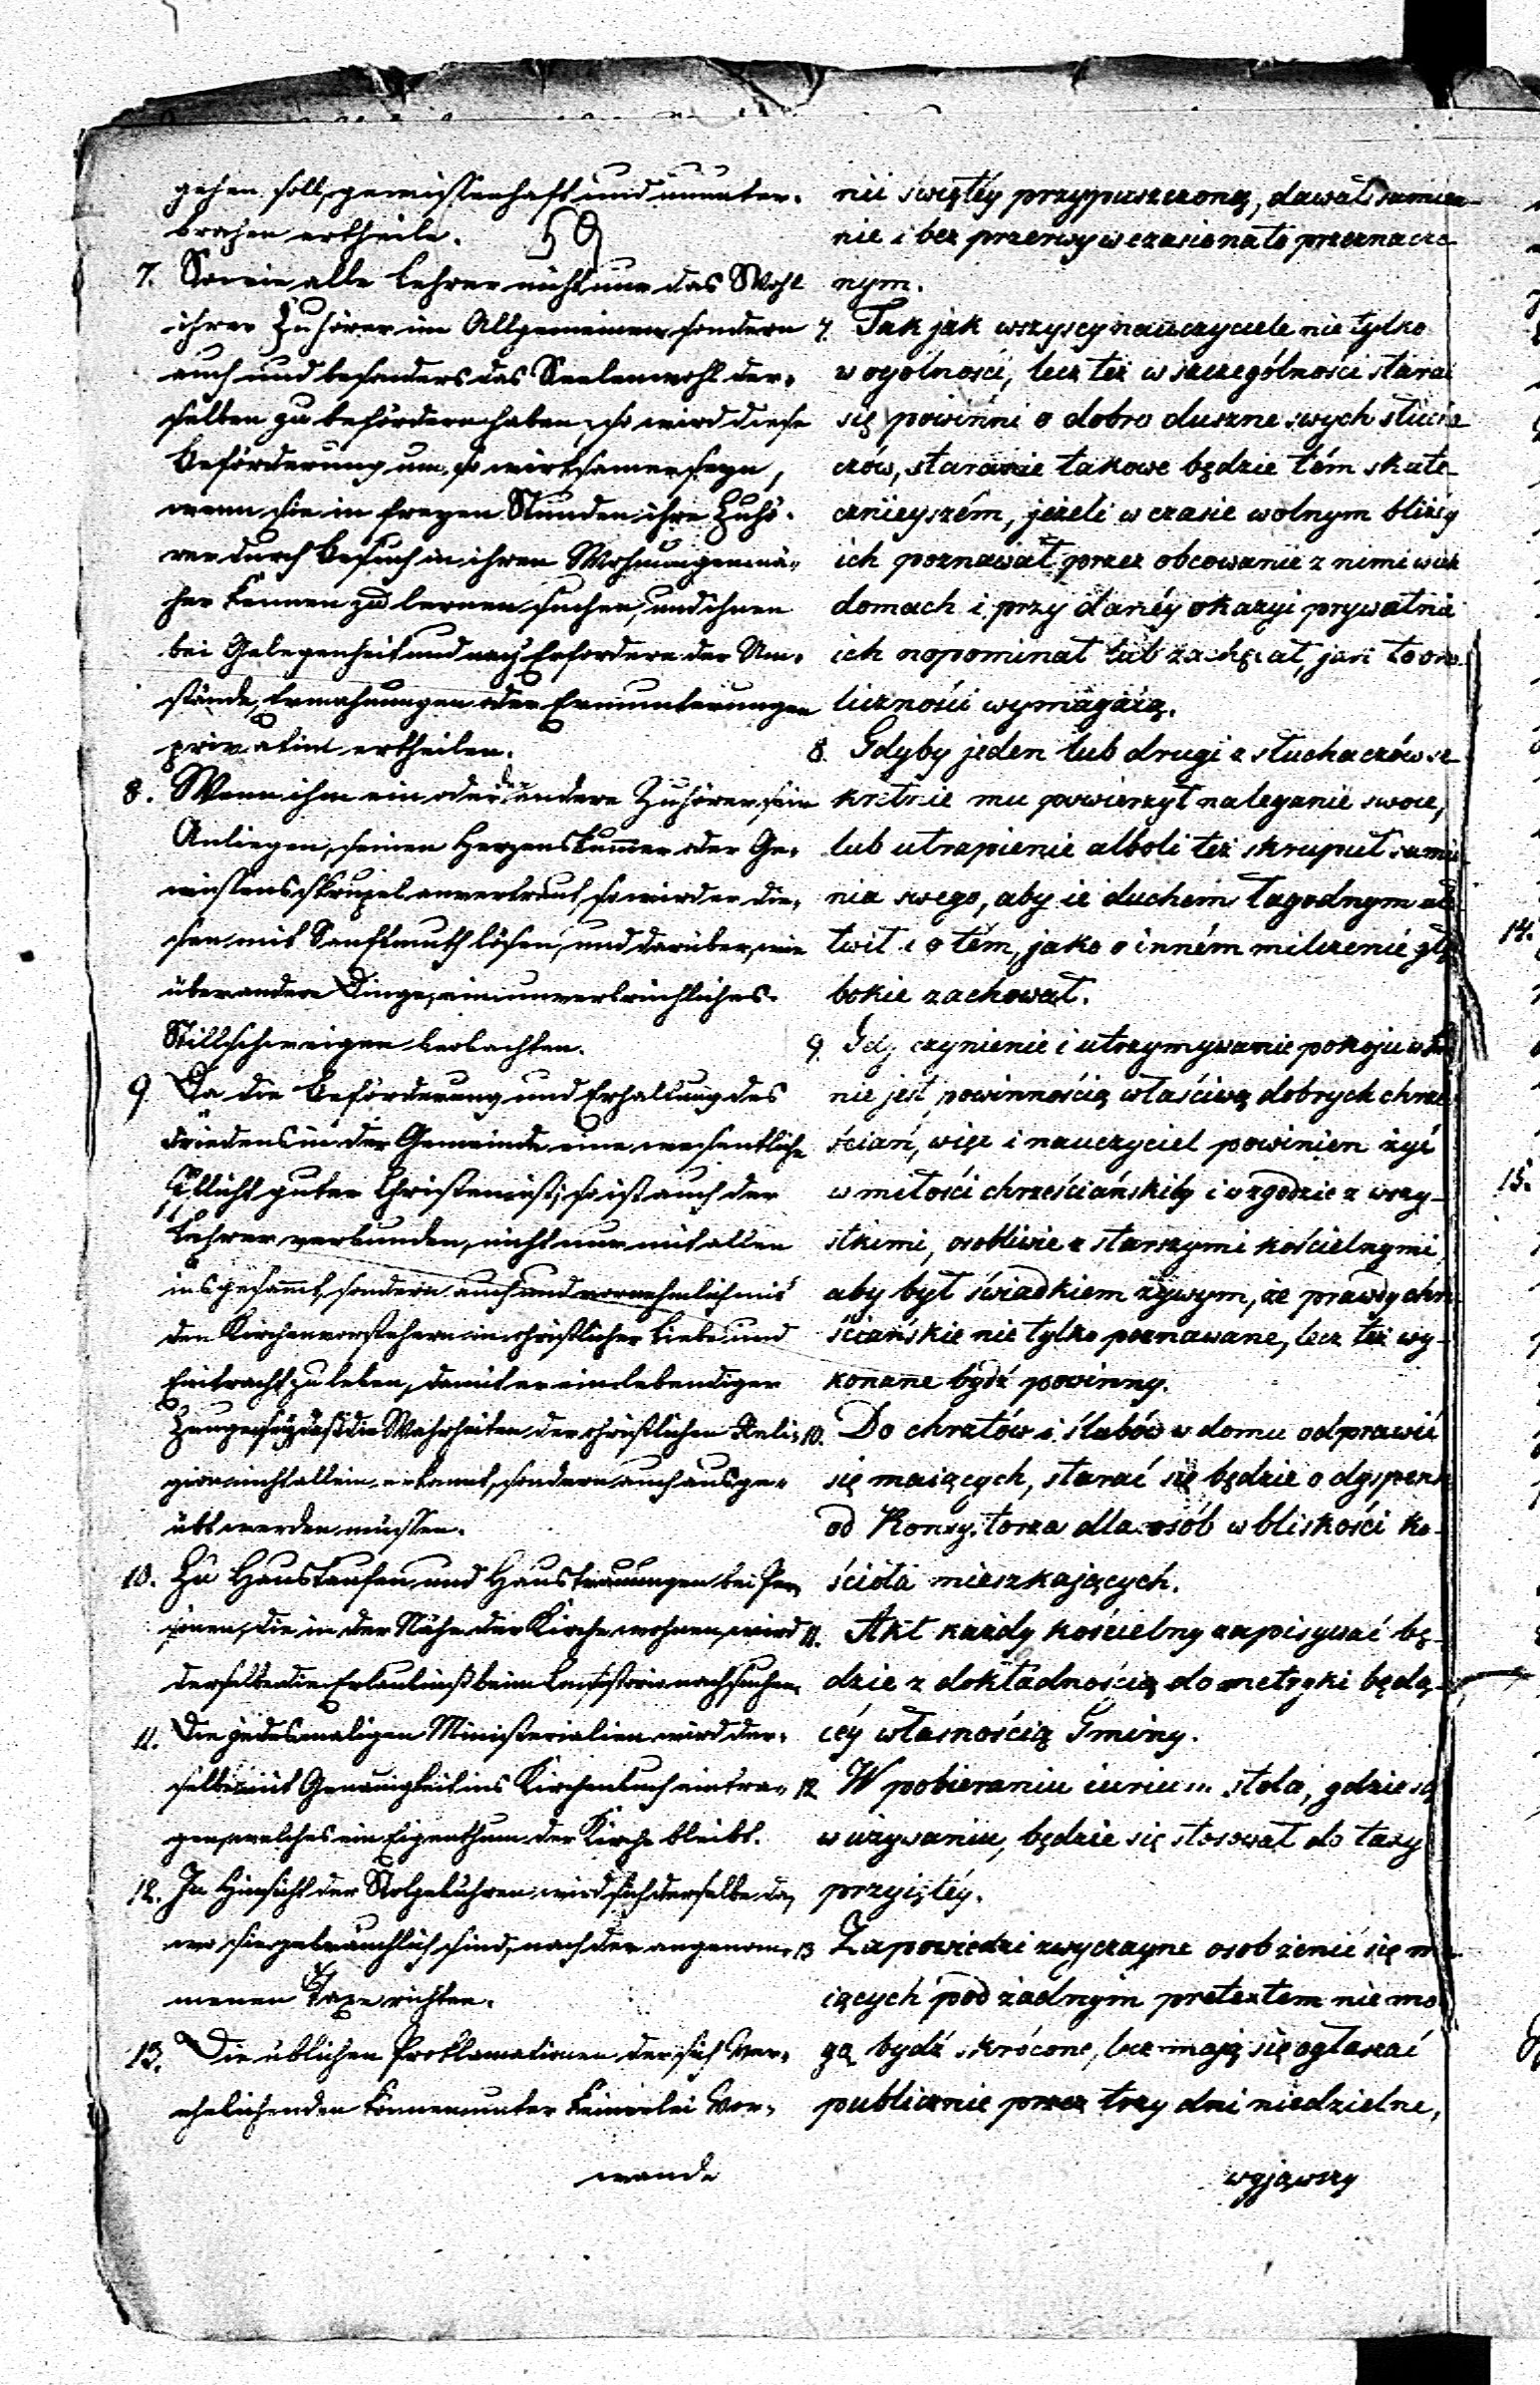 gehen soll, gewissenhaft und ununter-
brochen ertheile.
59
7. So wie alle Lehrer nicht nur das Wohl
ihrer Zuhörer im Allgemeinen sondern
auch und besonders das Seelenwohl der-
selben zu befördern haben, so wird diese
Beförderung um so wirksamer seyn,
wenn sie in freyen Stunden ihre Zuhö-
rer durch Besuch in ihren Wohnungen nä-
her kennen zu lernen suchen, und ihnen
bei Gelegenheit und nach Erfordern der Um-
stände, Ermahnungen oder Ermunterungen
privatim ertheilen.
8. Wenn ihm ein oder der andere Zuhörer sein
Anliegen, seinen Herzenskummer oder Ge-
wissensskrupel anvertraut, so wird er die-
sen mit Sanftmuth lösen, und darüber, wie
über andere Dinge, ein unverbrüchliches
Stillschweigen beobachten.
9 Da die Beförderung und Erhaltung des
Friedens in der Gemeinde eine wesentliche
Pflicht guter Christen ist, so ist auch der
Lehrer verbunden, nicht nur mit allen
insgesammt, sondern auch und vornehmlich mit
den Kirchenvorstehern in christlicher Liebe und
Eintracht zu leben, damit er ein lebendiger
Zeuge sey, daß die Wahrheiten der christlichen Reli-
gion nicht allein erkannt, sondern auch ausge-
übt werden müssen.
10. Zu Haustaufen und Haustrauungen bei Per-
sonen, die in der Nähe der Kirche wohnen, wird
derselbe die Erlaubniß beim Consistorio nachsuchen.
11. Die jedesmaligen Ministerialien wird der-
selbe mit Genauigkeit ins Kirchenbuch eintra-
gen, welches ein Eigenthum der Kirche bleibt.
12. In Hinsicht der Stolgebühren wird sich derselbe da,
wo sie gebräuchlich sind, nach der angenom-
menen Taxe richten.
13. Die üblichen Proklamationen der sich Ver-
ehelichenden können unter keinerlei Vor-
wande
nii świętéy przypuszczoną, dawał sumien-
nie i bez przerwy w czasie na to przeznaczo-
nym.
7. Tak jak wszyscy nauczyciele nie tylko
w ogólności, lecz też w szczególności starać
się powinni o dobro duszne swych słucha-
czów, staranie takowe będzie tém skute-
cznieyszém, jeżeli w czasie wolnym bliżey
ich poznawał przez obcowanie z nimi w ich
domach i przy danéy okazyi prywatnie
ich napominał lub zachęcał, jak to oko-
liczności wymagaią.
8. Gdyby jeden lub drugi z słuchaczów se-
kretnie mu powierzył naleganie swoie,
lub utrapienie alboli też skrupuł sumie-
nia swego, aby ie duchem łagodnym uła
twił i o tém, jako o inném milczenie głę
bokie zachował.
9. Gdy czynienie i utrzymywanie pokoju w
nie jest powinnością właściwą dobrych chrze-
ścian, więc i nauczyciel powinien żyć
w miłości chrześciańskiéy i w zgodzie z wszy-
stkimi, osobliwie z starszymi kościelnymi,
aby był świadkiem żywym, że prawdy chrze-
ściańskie nie tylko poznawane, lecz też wy-
konane bydź powinny.
10. Do chrztów i ślubów w domu odprawić
się maiących, starać się będzie o dyspens
od Konsystorza dla osób w bliskości ko-
ścioła mieszkających.
11. Akt każdy kościelny zapisywać bę-
dzie z dokładnością do metryki będą-
céy własnością Gminy.
12 W pobieraniu iurium stola, gdzie są
w używaniu, będzie się stosował do taxy
przyiętéy.
13 Zapowiedzi zwyczayne osob żenić się ma-
iących pod żadnym pretextem nie mo-
gą bydź skrócone, lecz mają się ogłaszać
publicznie przez trzy dni niedzielne,
wyjąwszy
14.
15.